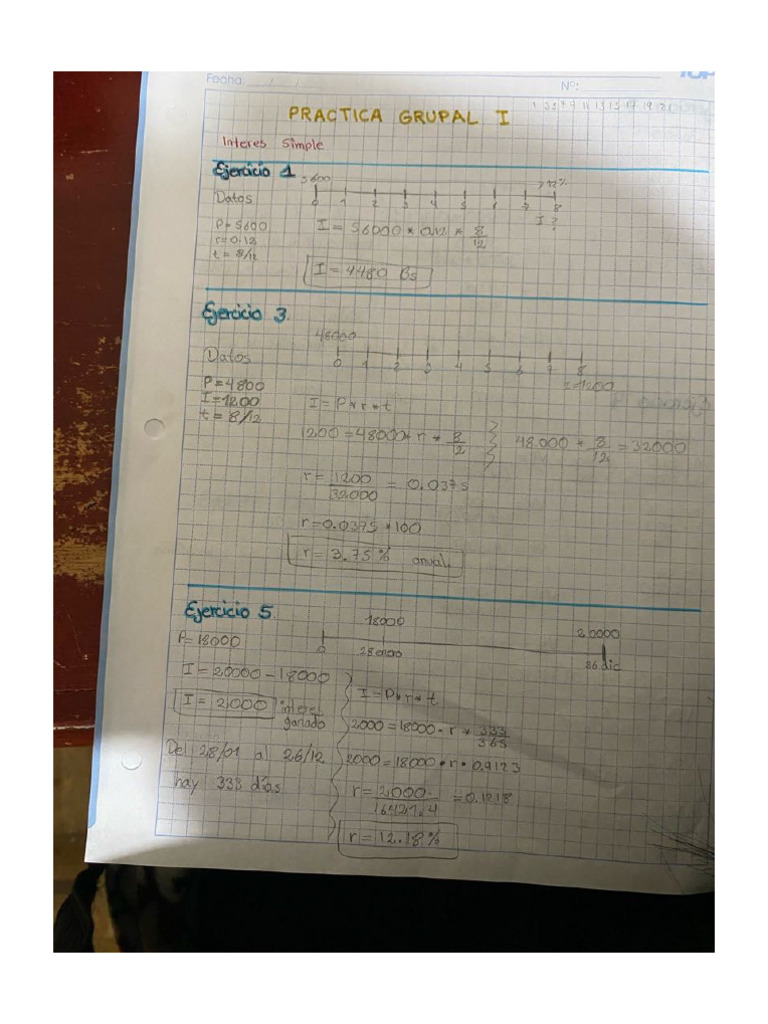 Fecha: / /
Nº:
1 3 5 7 9 11 13 15 17 19 2
PRACTICA GRUPAL I
Interes Simple
Ejercicio 1
5600
12%
0 1 2 3 4 5 6 7 8
Datos
I ?
P = 5600
r = 0.12
t = 8/12
I = 56000 * 0.12 * 8/12
I = 4480 Bs
Ejercicio 3.
48000
0 1 2 3 4 5 6 7 8
Datos
I=1200
P = 4800
I = 1200
t = 8/12
I = P * r * t
1200 = 48000 * r * 8/12
48.000 * 8/12 = 32000
r = 1200/32000 = 0.0375
r = 0.0375 * 100
r = 3.75% anual.
Ejercicio 5.
18000
20000
0
26 dic
P = 18000
I = 20000 - 18000
I = 2000 interes ganado
Del 28/01 al 26/12
hay 333 días
I = P * r * t
2000 = 18000 * r * 333/365
2000 = 18000 * r * 0.9123
r = 2000/16421.4 = 0.1218
r = 12.18%